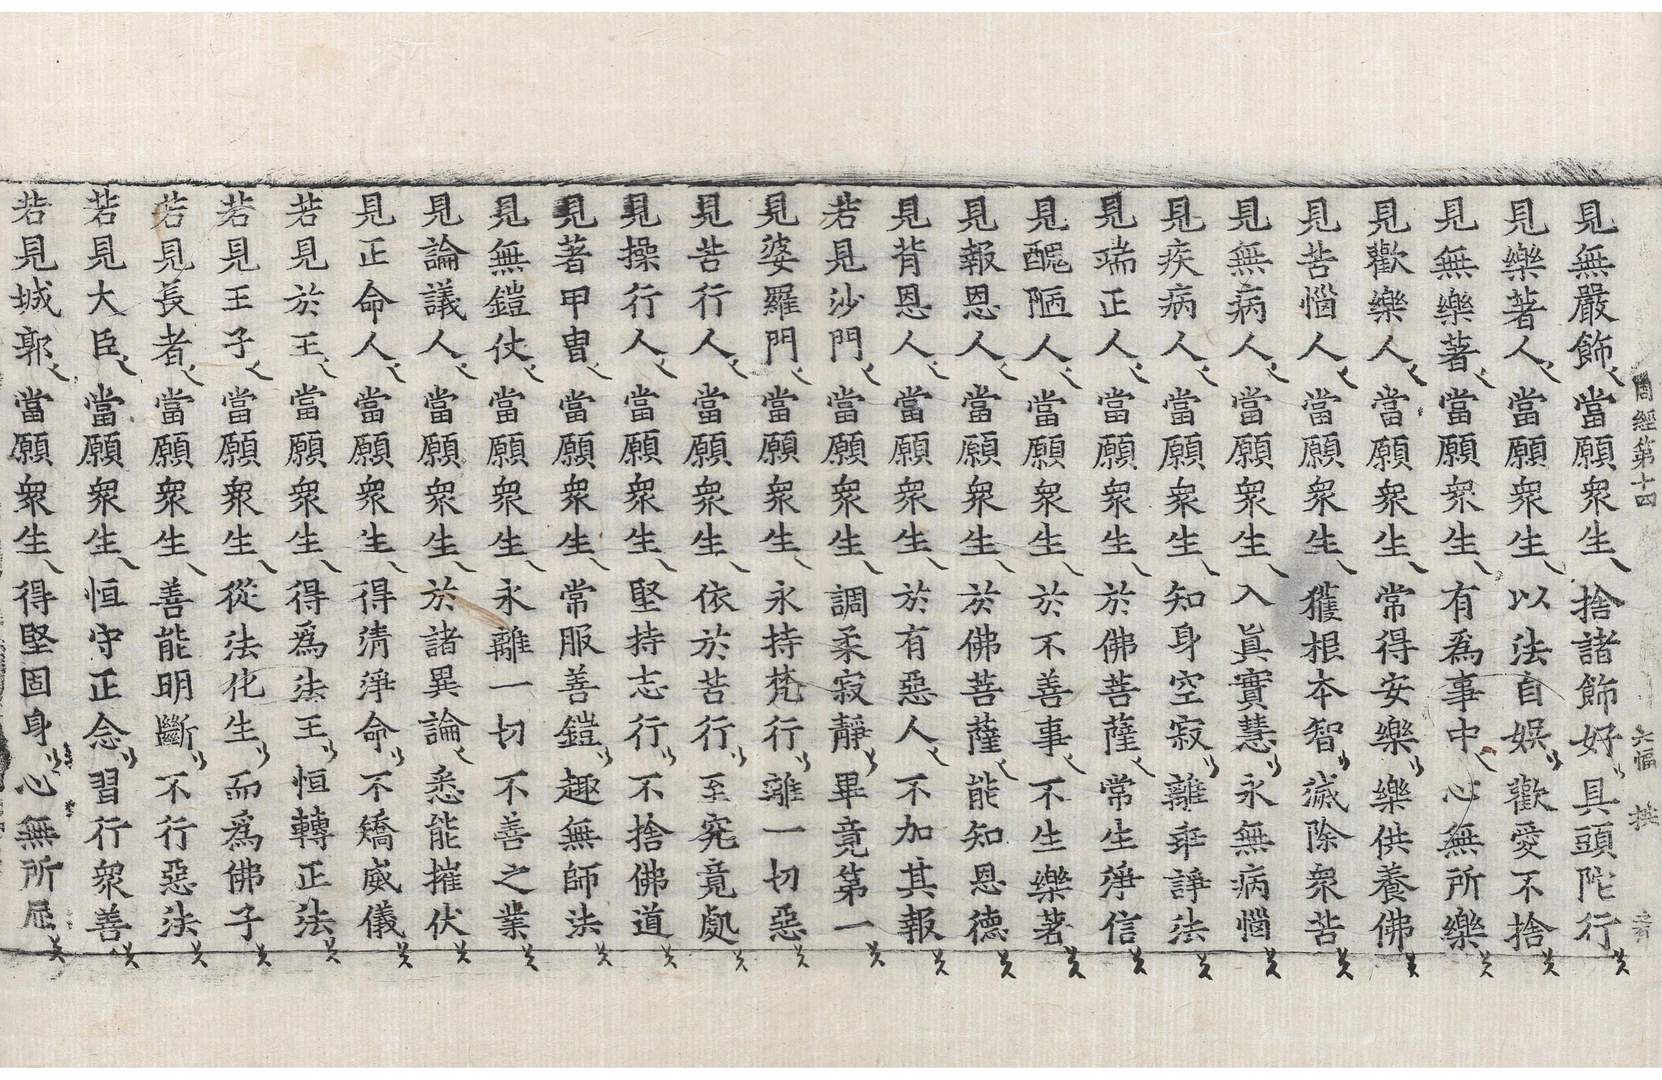 周經第十四 六幅
見無嚴飾 當願衆生 捨諸飾好 具頭陀行
見樂著人 當願衆生 以法自娛 歡愛不捨
見無樂著 當願衆生 有爲事中 心無所樂
見歡樂人 當願衆生 常得安樂 樂供養佛
見苦惱人 當願衆生 獲根本智 滅除衆苦
見無病人 當願衆生 入眞實慧 永無病惱
見疾病人 當願衆生 知身空寂 離乖諍法
見端正人 當願衆生 於佛菩薩 常生淨信
見醜陋人 當願衆生 於不善事 不生樂著
見報恩人 當願衆生 於佛菩薩 能知恩德
見背恩人 當願衆生 於有惡人 不加其報
若見沙門 當願衆生 調柔寂靜 畢竟第一
見婆羅門 當願衆生 永持梵行 離一切惡
見苦行人 當願衆生 依於苦行 至究竟處
見操行人 當願衆生 堅持志行 不捨佛道
見著甲冑 當願衆生 常服善鎧 趣無師法
見無鎧仗 當願衆生 永離一切 不善之業
見論議人 當願衆生 於諸異論 悉能摧伏
見正命人 當願衆生 得清淨命 不矯威儀
若見於王 當願衆生 得爲法王 恒轉正法
若見王子 當願衆生 從法化生 而爲佛子
若見長者 當願衆生 善能明斷 不行惡法
若見大臣 當願衆生 恒守正念 習行衆善
若見城郭 當願衆生 得堅固身 心無所屈